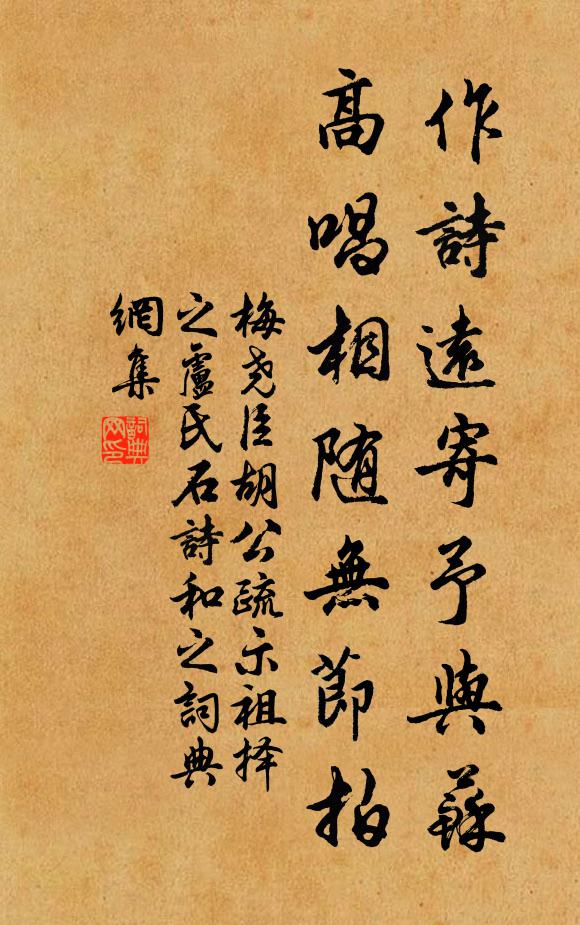 作詩遠寄予與蘇
高唱相随無節拍
梅尧臣胡公疏示祖择
之盧氏石詩和之詞典
網集
詞典
网印